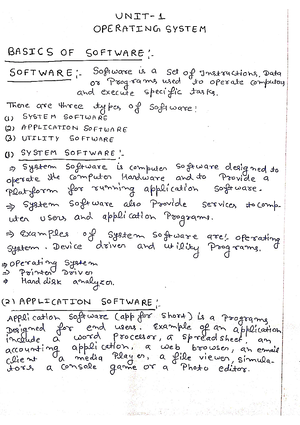 UNIT-1
OPERATING SYSTEM
BASICS OF SOFTWARE:-
SOFTWARE:- Software is a set of Instructions, Data
or Programs used to operate computers
and execute specific tasks.
There are three types of Software:
(1) SYSTEM SOFTWARE
(2) APPLICATION SOFTWARE
(3) UTILITY SOFTWARE
(1) SYSTEM SOFTWARE:-
⇒ System Software is computer Software designed to
operate the Computer Hardware and to Provide a
Platform for running application Software.
⇒ System Software also Provide services to comp-
uter users and application Programs.
⇒ Examples of System Software are:- operating
System. Device driver and utility Programs.
⇒ Operating System
⇒ Printer Driver
⇒ Hard disk analyzer.
(2) APPLICATION SOFTWARE:-
Application Software (app for short) is a Programs
Designed for end users. Example of an application
include a word Processor, a Spreadsheet, an
accounting application, a web browser, an email
client a media Player, a file viewer, simula-
tors a console game or a Photo editor.